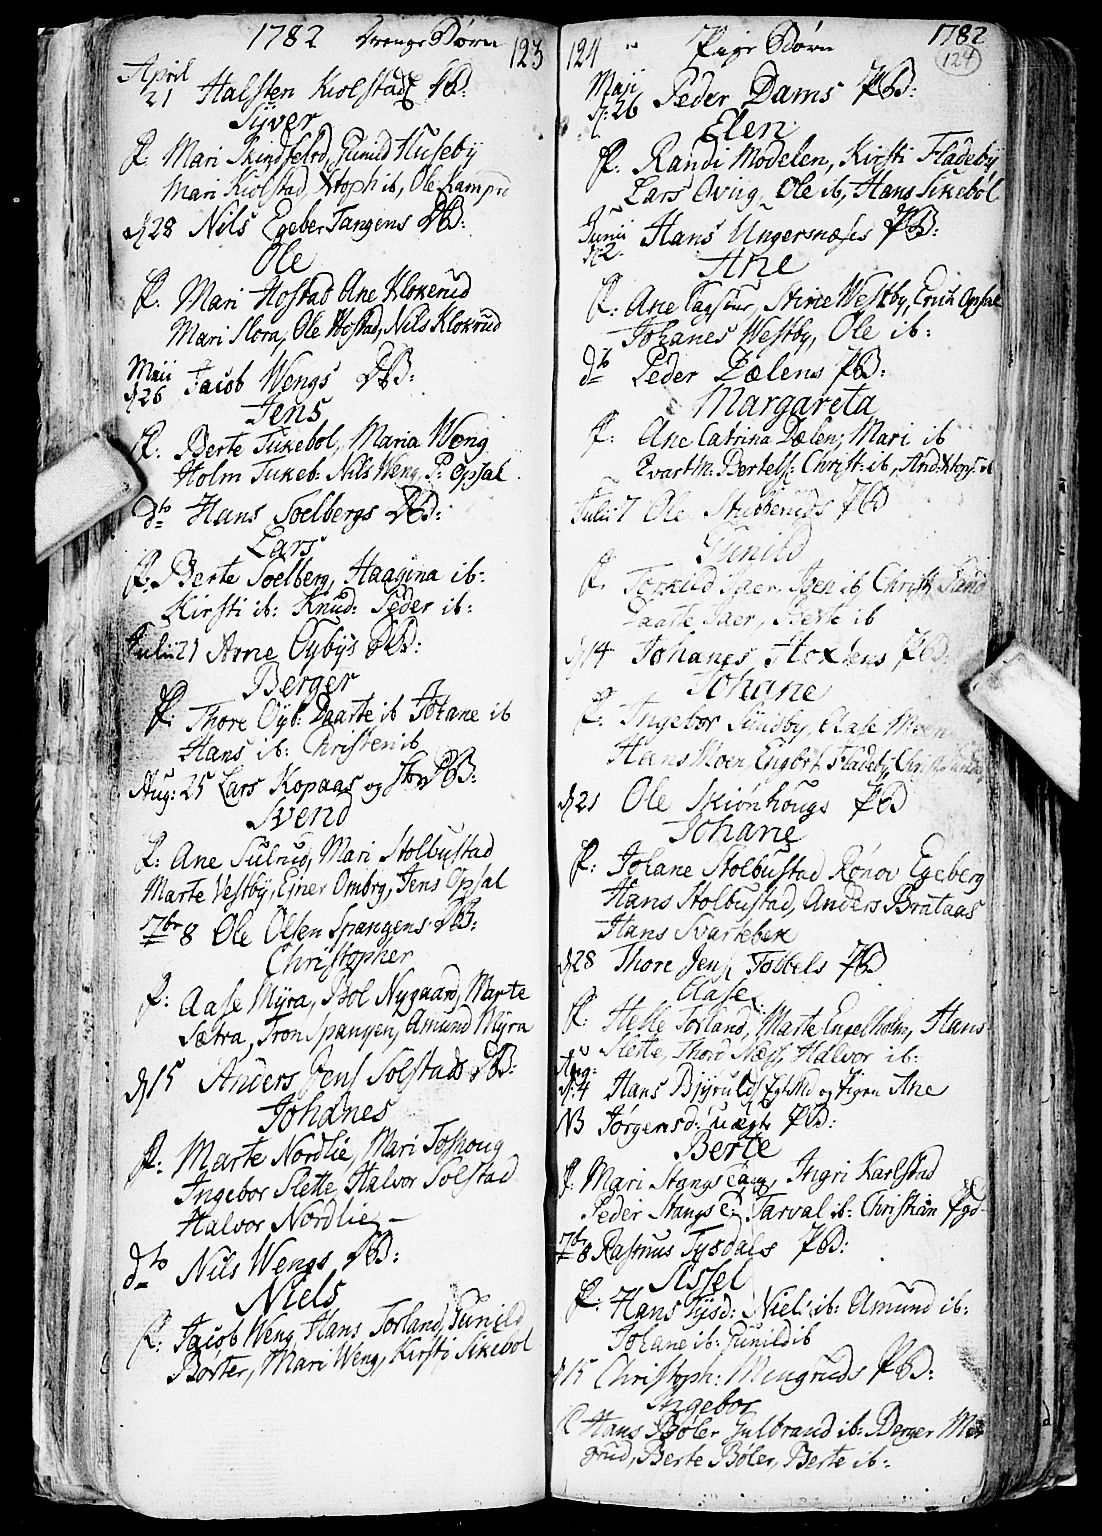 1782 Drenge Børn 123
April
21 Halsten Kiolstads DB:
Siver
F. Mari Skindfelrd, Gunild Huseby
Mari Kiolstad, Xtoph ib, Ole Kamprd
d 28 Nils Egeber Tangens DB:
Ole
F. Mari Hostad Ane Klokerud
Mari Flora, Ole Hostad, Nils Klokrud
Maii
d 26 Jacob Wengs DB:
Jens
F. Berte Sikebol, Maria Weng
Holm Sikeb: Nils Weng, P: Opsal
dto Hans Soelbergs DB:
Lars
F. Berte Soelberg, Haagina ib:
Kirsti ib: Knud: Peder ib:
Julii 21 Arne Oybys DB:
Berger
F. Thore Oyb: Daarte ib Johane ib
Hans ib: Christen ib
Aug: 25 Lars Kopaas og DB:
Svend
F. Ane Sulrud, Mari Stolbustad
Marte Vestby, Ejner Ombrg, Jens Opsal
7br 8 Ole Olsen Spangens DB:
Christopher
F. Aase Myra, Bol Nygaard, Marte
Sætra, Tron Spangen, Amund Myra
d 15 Anders Jens Solstads DB:
Johanes
F. Marte Nordlie, Mari Toshoug
Ingebor Slette, Halvor Solstad
Halvor Nordlie –
dto Nils Wengs DB:
Niels
F. Jacob Weng, Hans Torland, Gunild
Borter, Mari Weng, Kirsti Sikebol
124 Pige Børn 1782
(124)
Maji
d: 26 Peder Dams PB:
Elen
F. Randi Modelen, Kirsti Fladeby
Lars Oviig, Ole ib, Hans Sikebøl
Junii
d 2. Hans Ungersnæses PB:
Ane
F: Ane Tagstur, Stine Westby, Erich Opsal
Johanes Westby, Ole ib:
dto Peder Dælens PB:
Margareta
F: Ane Catrina Dælen, Mari ib
Evart M: Bertels: Christ: ib, And: Xtops:
Julii 7 Ole Stubberuds PB
Gunild
F. Torkild Saer, ib, Christ:
Daarte Saer, Berte ib
d 14 Johanes PB:
Johane
F: Ingebor Sundby, Aase Moen
Hans Moen, Engbrt Fladeby,
d 21 Ole Skiønhougs PB
Johane
F: Johane Stolbustad Rønov Egeberg
Hans Stolbustad, Anders Brataas
Hans Svartebek
d 28 Thore Jens Tobbels PB
Aase
F. Helle Torland, Marte Engelholm, Hans
Slette, Thord Næss, Halvor ib:
Aug:
d: 4 Hans Bjyruld og Pigen Ane
NB Jørgensd: uægte PB:
Berte
F. Mari Stangs Eng, Ingri Karlstad
Peder Stangs E: Tarval ib: Christian
7br 8 Rasmus Tysdals PB:
Sissel
F: Hans Tysd: Niels ib: Amund ib:
Johane ib: Gunild ib
d 15 Christoph: Mengruds PB:
Ingebor
F Hans Bøler Gulbrand ib: Berger Men
grud, Berte Bøler, Berte ib: